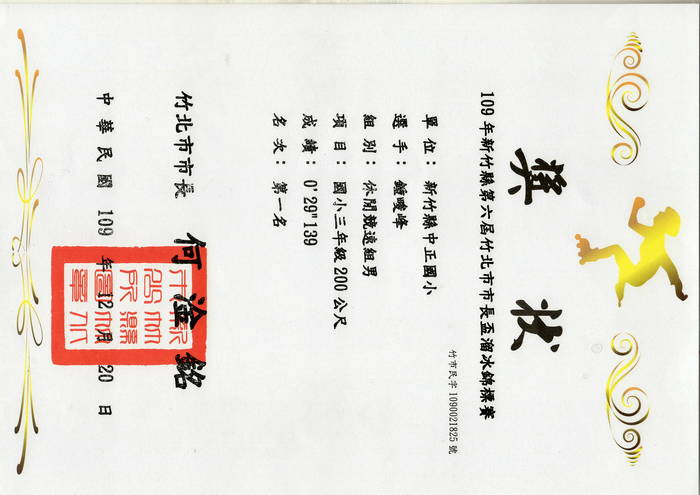 獎狀
109 年新竹縣第六屆竹北市市長盃溜冰錦標賽
竹市民字 1090021825 號
單 位： 新竹縣中正國小
選 手： 鍾曖峰
組 別： 休閒競速組男
項 目： 國小三年級 200 公尺
成 績： 0' 29" 139
名 次： 第一名
竹北市市長 何淦銘
中 華 民 國 109 年 12 月 20 日